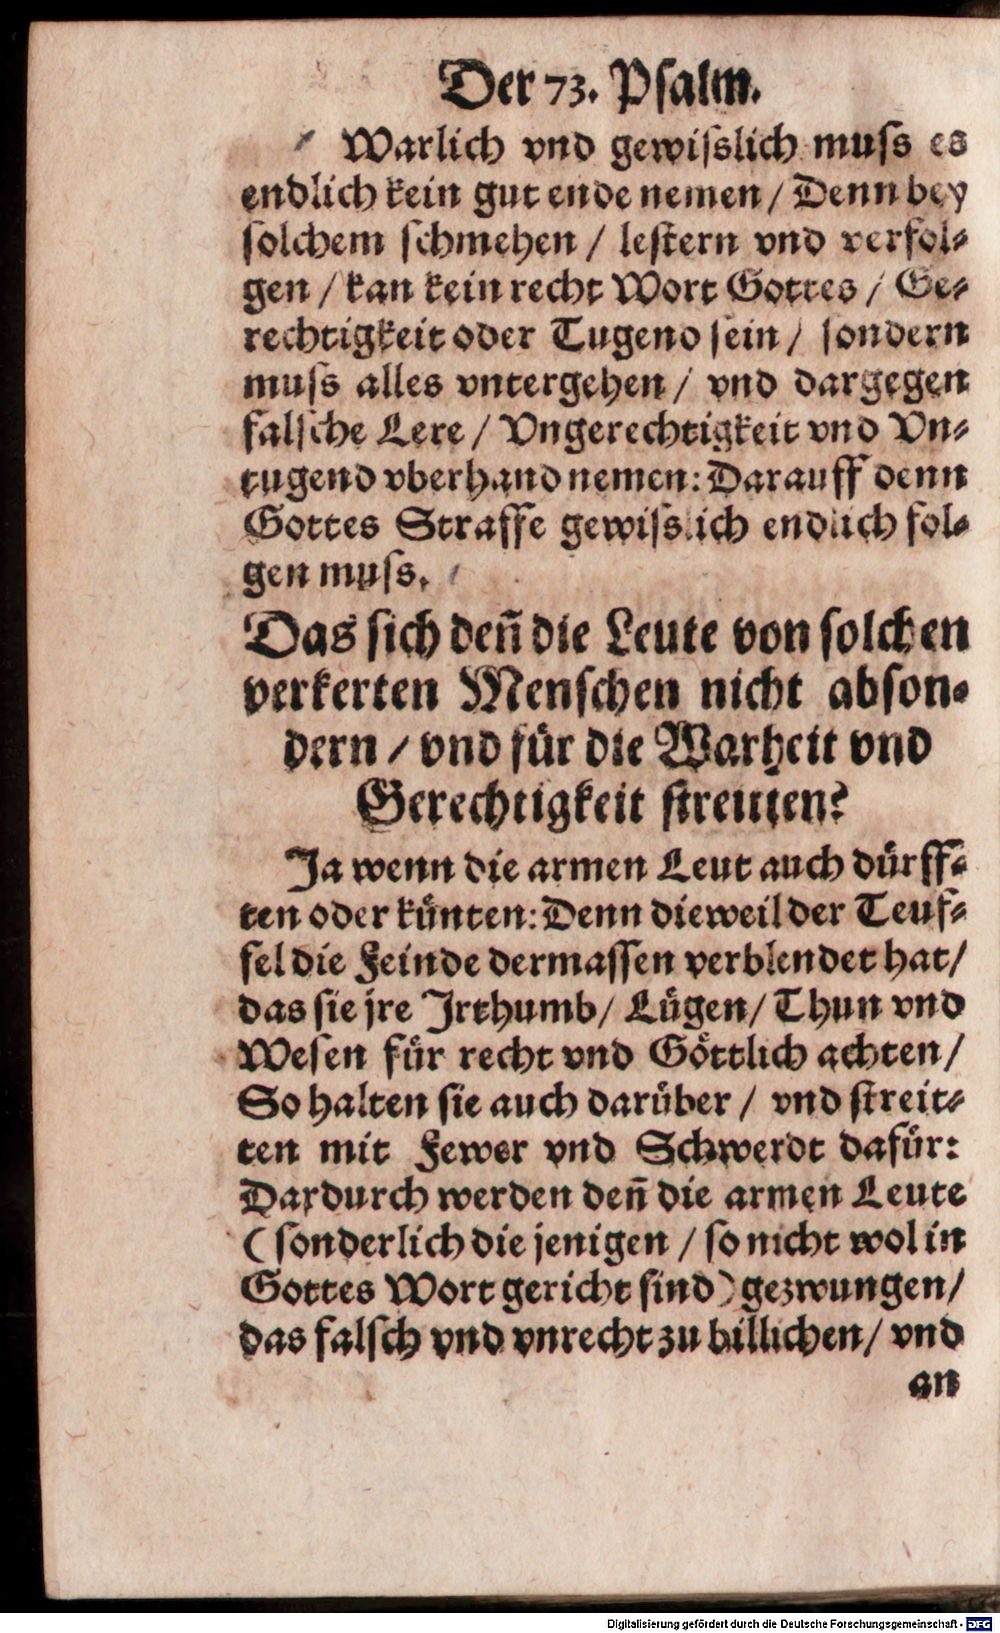 Der 73. Psalm.
Warlich vnd gewisslich muss es
endlich kein gut ende nemen / Denn bey
solchem schmehen / lestern vnd verfol-
gen / kan kein recht Wort Gottes / Ge-
rechtigkeit oder Tugend sein / sondern
muss alles vntergehen / vnd dargegen
falsche Lere / Vngerechtigkeit vnd Vn-
tugend vberhand nemen: Darauff denn
Gottes Straffe gewisslich endlich fol-
gen muss.
Das sich deñ die Leute von solchen
verkerten Menschen nicht abson-
dern / vnd für die Warheit vnd
Gerechtigkeit streitten?
Ja wenn die armen Leut auch dürff-
ten oder künten: Denn dieweil der Teuf-
fel die Feinde dermassen verblendet hat /
das sie jre Irthumb / Lügen / Thun vnd
Wesen für recht vnd Göttlich achten /
So halten sie auch darüber / vnd streit-
ten mit Fewer vnd Schwerdt dafür:
Dardurch werden deñ die armen Leute
( sonderlich die jenigen / so nicht wol in
Gottes Wort gericht sind ) gezwungen /
das falsch vnd vnrecht zu billichen / vnd
an
Digitalisierung gefördert durch die Deutsche Forschungsgemeinschaft - DFG